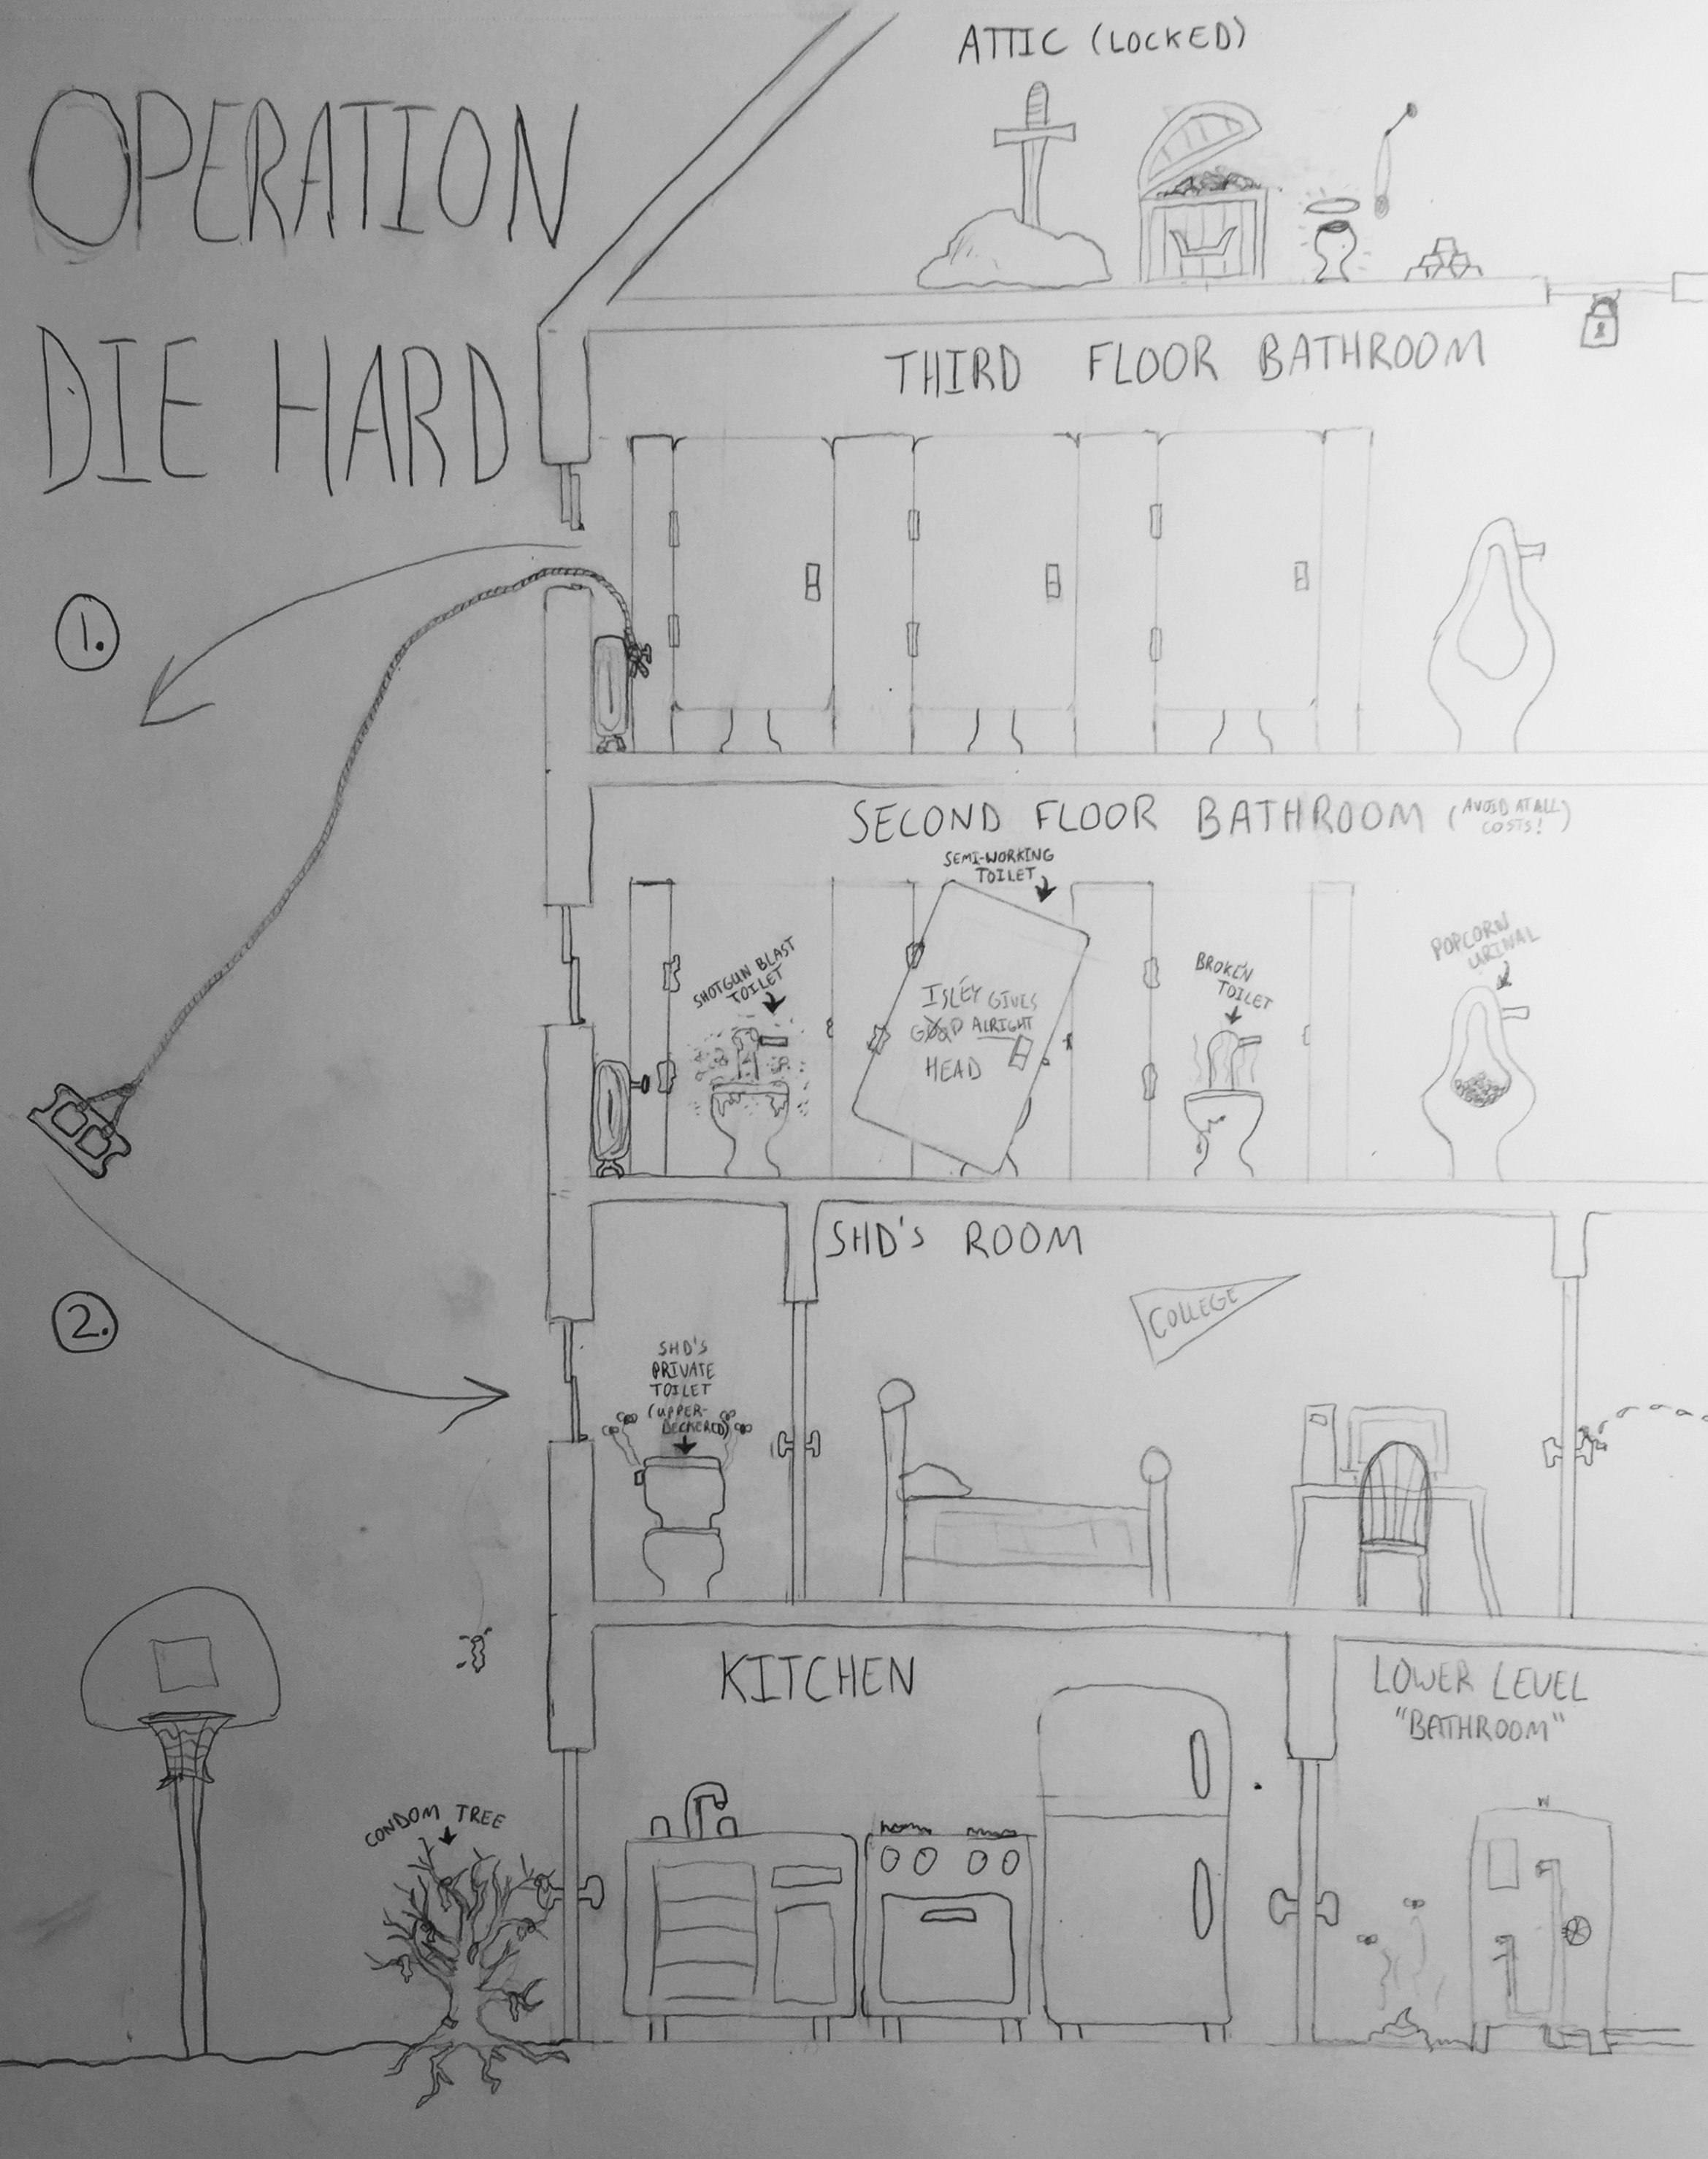 ATTIC (LOCKED)
OPERATION
DIE HARD
THIRD FLOOR BATHROOM
1.
SECOND FLOOR BATHROOM (AVOID AT ALL
COSTS!)
SEMI-WORKING
TOILET
SHOTGUN BLAST
TOILET
ISLEY GIVES
GOOD ALRIGHT
HEAD
BROKEN
TOILET
POPCORN
URINAL
SHD'S ROOM
2.
COLLEGE
SHD'S
PRIVATE
TOILET
(UPPER-
DECKERED)
KITCHEN
LOWER LEVEL
"BATHROOM"
CONDOM TREE